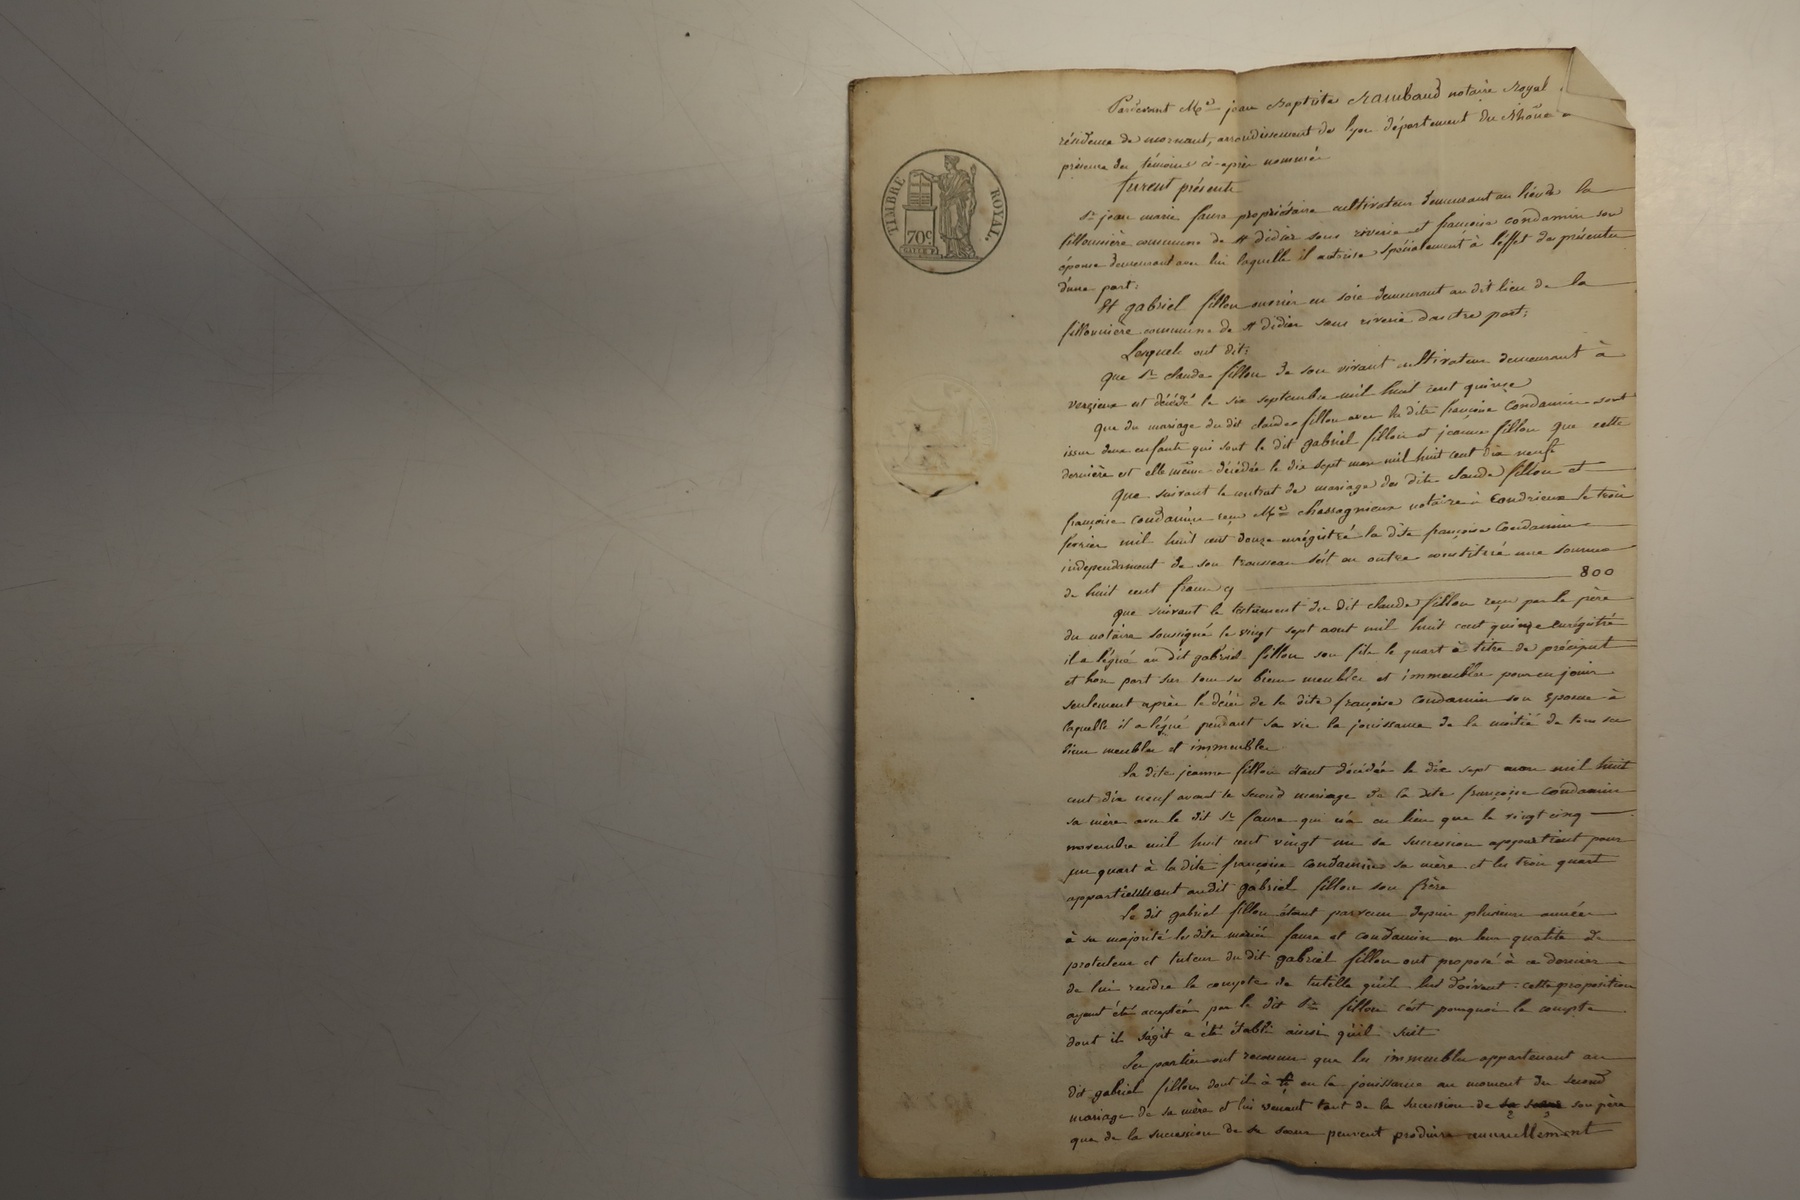 TIMBRE ROYAL.
70c
Pardevant Me jean Baptiste Rambaud notaire Royal
résidence de mornant, arrondissement de lyon département du Rhône
présence des témoins ci-après nommés
furent présents
Sr jean marie faure propriétaire cultivateur demeurant au lieu de la
fillonnière commune de st didier sous riverie et françoise condamin son
épouse demeurant avec lui laquelle il autorise spécialement à l'éffet des présentes
d'une part;
Et gabriel fillon ouvrier en soie demeurant au dit lieu de la
fillonnière commune de st didier sous riverie d'autre part;
Lesquels ont dit:
Que Sr claude fillon de son vivant cultivateur demeurant à
est décédé le six septembre mil huit cent quinze
Que du mariage du dit claude fillon avec la dite françoise Condamin sont
issus deux enfants qui sont le dit gabriel fillon et jeanne fillon que cette
dernière est elle même décédée le dix sept mars mil huit cent dix neuf
Que suivant le contrat de mariage des dits claude fillon et
françoise condamin reçu Me chassagnieux notaire à Condrieux le trois
février mil huit cent douze enrégistré la dite françoise Condamin
indépendament de son trousseau s'est en outre constitué une somme
de huit cent francs 800
Que suivant le testament du dit claude fillon reçu par le père
du notaire soussigné le vingt sept aout mil huit cent quinze enrégistré
il a légué au dit gabriel fillon son fils le quart à titre de préciput
et hors part sur tous ses biens meubles et immeubles pour en jouir
seulement après le décès de la dite françoise Condamin son épouse à
laquelle il a légué pendant sa vie la jouissance de la moitié de tous ses
biens meubles et immeubles.
La dite jeanne fillon étant décédée le dix sept mars mil huit
cent dix neuf avant le second mariage de la dite françoise condamin
sa mère avec le dit Sr faure qui n'a eu lieu que le vingt cinq
novembre mil huit cent vingt un sa succession appartient pour
un quart à la dite françoise condamin sa mère et les trois quart
appartiennent au dit gabriel fillon son frère
Le dit gabriel fillon étant parvenu depuis plusieurs années
à sa majorité les dits mariés faure et condamin en leur qualité de
protuteur et tuteur du dit gabriel fillon ont proposé à ce dernier
de lui rendre le compte de tutelle qu'ils lui doivent: cette proposition
ayant été acceptée par le dit Sr fillon c'est pourquoi le compte
dont il s'agit a été établi ainsi qu'il suit
Les parties ont reconnu que les immeubles appartenant au
dit gabriel fillon dont ils a eu la jouissance au moment du second
mariage de sa mère et lui venant tant de la succession de son père
que de la succession de sa sœur peuvent produire annuellement